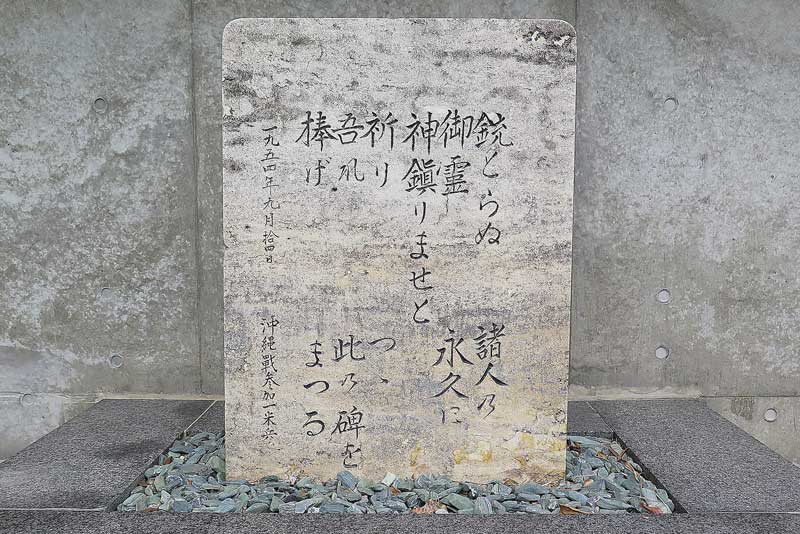 銃とらぬ 諸人乃
御靈 永久に
神鎭りませと
祈り つゝ
吾れ 此乃碑を
捧げ まつる
一九五四年九月拾四日 沖縄戰参加一米兵